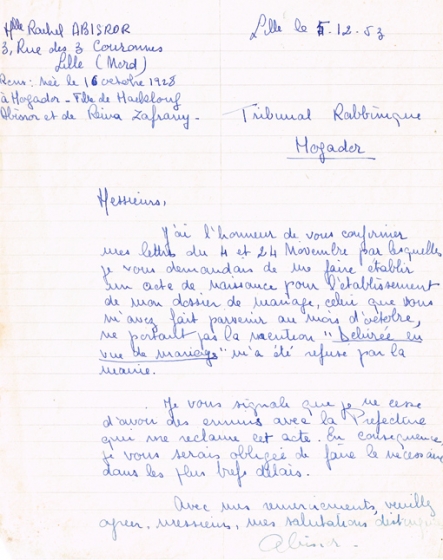 Mlle Rachel ABISROR
3, Rue des 3 Couronnes
Lille (Nord)
Rens: née le 16 octobre 1928
à Mogador - Fille de Makelouf
Abisror et de Reina Zafrany -
Lille le 5.12.53
Tribunal Rabbinique
Mogador
Messieurs,
J'ai l'honneur de vous confirmer
mes lettres du 4 et 24 Novembre par lesquelles
je vous demandais de me faire établir
un acte de naissance pour l'établissement
de mon dossier de mariage, celui que vous
m'avez fait parvenir au mois d'octobre,
ne portant pas la mention "Délivrée en
vue de mariage" m'a été refusé par la
mairie.
Je vous signale que je ne cesse
d'avoir des ennuis avec la Préfecture
qui me réclame cet acte. En conséquence
je vous serais obligée de faire le nécessaire
dans les plus brefs délais.
Avec mes remerciements, veuillez
agréer, messieurs, mes salutations distinguées